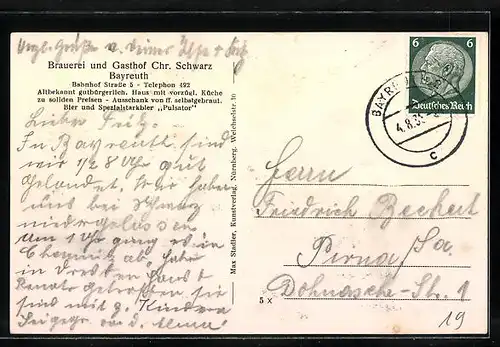 Brauerei und Gasthof Chr. Schwarz
Bayreuth
Bahnhof Straße 5 - Telephon 492
Altbekannt gutbürgerlich. Haus mit vorzügl. Küche
zu soliden Preisen - Ausschank von ff. selbstgebraut.
Bier und Spezialstarkbier „Pulsator"
Lieber Fritz:
In Bayreuth sind
wir 1/2 8 Uhr gut
gelandet. Wir haben
uns bei
niedergelassen
Um 1 Uhr ging es in
Chemnitz ab habe
in Dresden Hans &
Renate getroffen sie
sind mit
Max Stadler, Kunstverlag, Nürnberg, Weichselstr. 16
6 6
Deutsches Reich
BAYREUTH
4.8.3
c
Herrn
Friedrich Bechert
Pirna/Sa
Dohnasche-Str. 1
5 x
19